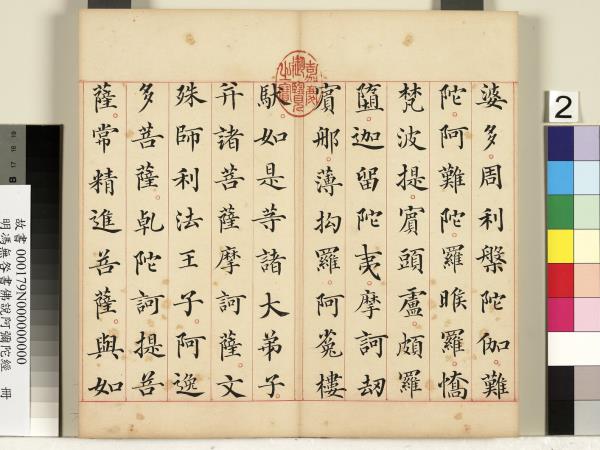 婆多。周利槃陀伽。難
陀。阿難陀。羅睺羅。憍
梵波提。賓頭盧。頗羅
墮。迦留陀夷。摩訶劫
賓那。薄拘羅。阿㝹樓
馱。如是等諸大弟子。
并諸菩薩摩訶薩。文
殊師利法王子。阿逸
多菩薩。乾陀訶提菩
薩。常精進菩薩。與如
嘉慶御覽之寶
2
故書 000179N000000000
明馮無咎書佛說阿彌陀經 冊